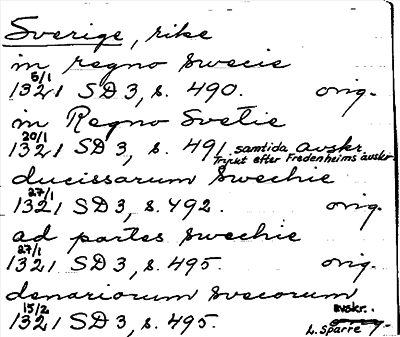 Sverige, rike
in regno Swecie
5/1
1321 SD 3, s. 490. orig.
in Regno Svetie
20/1
1321 SD 3, s. 491 samtida avskr.
Tryckt efter Fredenheims avskr.
ducissarum Swechie
27/1
1321 SD 3, s. 492. orig.
ad partes Swechie
27/1
1321 SD 3, s. 495. orig.
denariorum Svecorum
15/2
1321 SD 3, s. 495. avskr.
L. Sparre